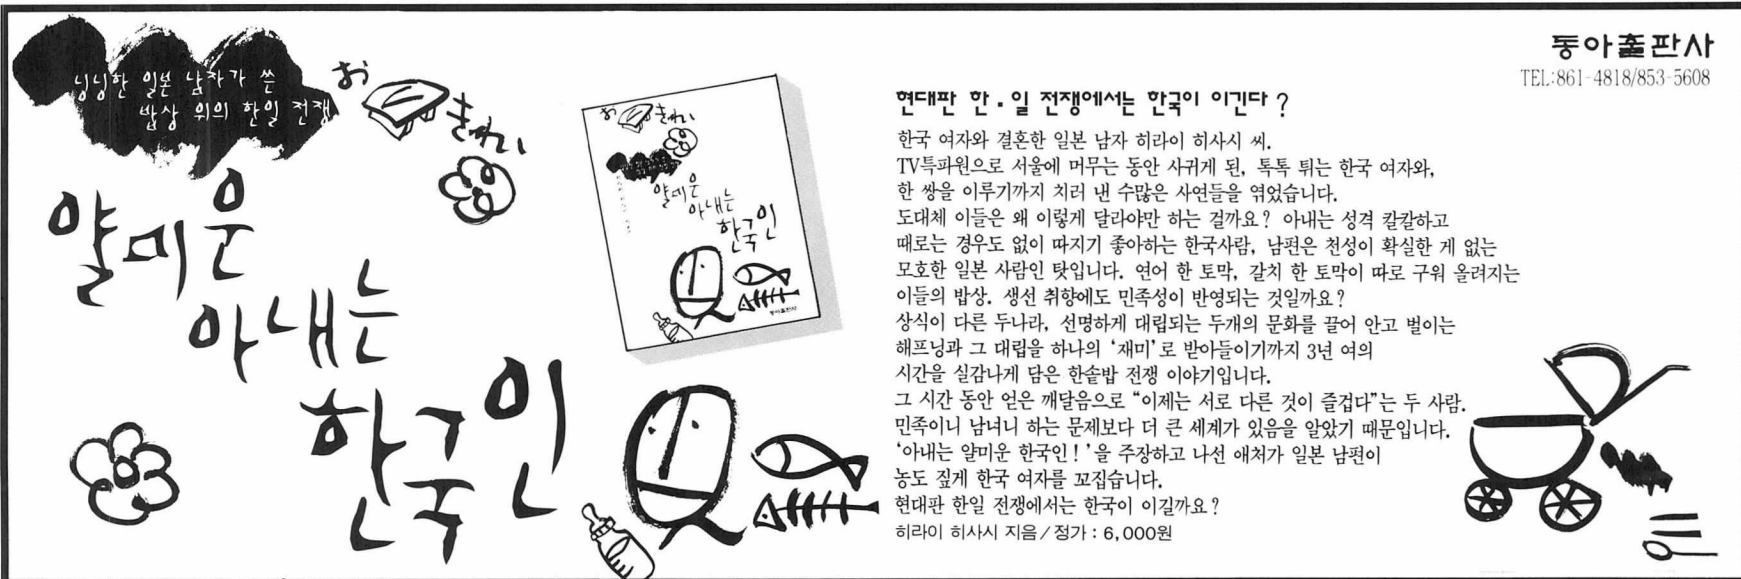 닝닝한 일본 남자가 쓴
밥상 위의 한일 전쟁
お
きれい
얄미운
아내는
한국인
お
きれい
얄미운
아내는
한국인
동아출판사
동아출판사
TEL:861-4818/853-5608
현대판 한·일 전쟁에서는 한국이 이긴다?
한국 여자와 결혼한 일본 남자 히라이 히사시 씨.
TV특파원으로 서울에 머무는 동안 사귀게 된, 톡톡 튀는 한국 여자와,
한 쌍을 이루기까지 치러 낸 수많은 사연들을 엮었습니다.
도대체 이들은 왜 이렇게 달라야만 하는 걸까요? 아내는 성격 칼칼하고
때로는 경우도 없이 따지기 좋아하는 한국사람, 남편은 천성이 확실한 게 없는
모호한 일본 사람인 탓입니다. 연어 한 토막, 갈치 한 토막이 따로 구워 올려지는
이들의 밥상. 생선 취향에도 민족성이 반영되는 것일까요?
상식이 다른 두나라, 선명하게 대립되는 두개의 문화를 끌어 안고 벌이는
해프닝과 그 대립을 하나의 '재미'로 받아들이기까지 3년 여의
시간을 실감나게 담은 한솥밥 전쟁 이야기입니다.
그 시간 동안 얻은 깨달음으로 "이제는 서로 다른 것이 즐겁다"는 두 사람.
민족이니 남녀니 하는 문제보다 더 큰 세계가 있음을 알았기 때문입니다.
'아내는 얄미운 한국인!'을 주장하고 나선 애처가 일본 남편이
농도 짙게 한국 여자를 꼬집습니다.
현대판 한일 전쟁에서는 한국이 이길까요?
히라이 히사시 지음/정가: 6,000원